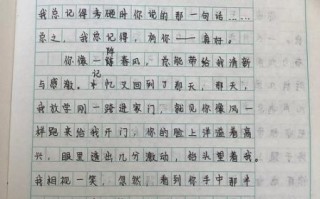 我总记得考硬时你说的那一句话……
总之，我总记得，有你——真好。
你像一阵春风，总能带给我清新
与感激。记忆又回到了那天，那天，
我放学刚一踏进家门，就见你像风一
样跑来给我开门，你的脸上洋溢着高
兴，眼里透出几分激动，抬头望着我。
我相视一笑，忽然，看到你手中那半